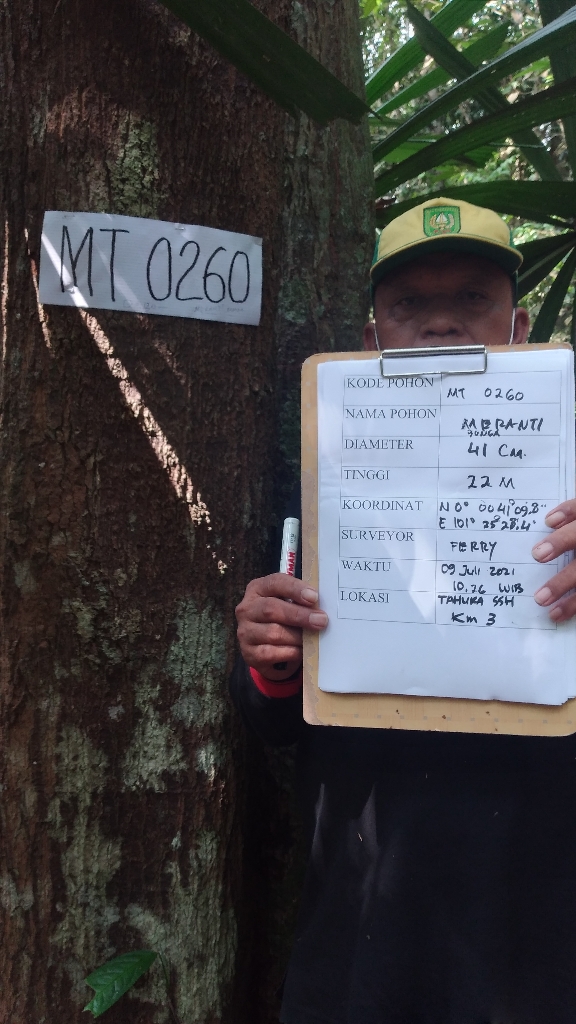 MT 0260
KODE POHON MT 0260
NAMA POHON MERANTI
BUNGA
DIAMETER 41 Cm.
TINGGI 22 M
KOORDINAT N 0° 00 41° 09.8"
E 101° 25° 28.4"
SURVEYOR FERRY
WAKTU 09 Juli 2021
10.26 WIB
LOKASI TAHURA SSH
Km 3